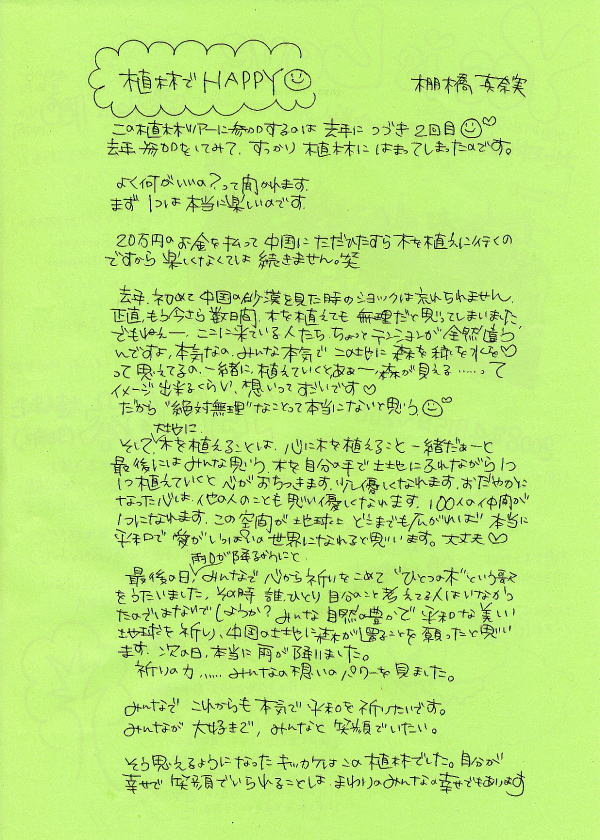 植林でHAPPY☺
棚橋 真奈実
この植林ツアーに参加するのは 去年に つづき 2回目☺♡
去年 参加をしてみて、すっかり 植林に はまってしまったのです。
よく何がいいの？って聞かれます。
まず 1つは 本当に楽しいのです。
20万円の お金を払って 中国に ただひたすら 木を植えに行くの
ですから 楽しくなくては 続きません。笑
去年、初めて 中国の砂漠を見た時のショックは忘れられません。
正直、もう今さら 数日間、木を植えても 無理だと思ってしまいました
でもねぇー、ここに来ている人たち、ちょっとテンションが全然違う
んですよ、本気なの。みんな本気で この地に 森を 緑を 水を♡
って思えてるの、一緒に植えていくとあぁー 森が見える……って
イメージ出来るくらい、想いってすごいです♡
だから “絶対無理” なことって本当にないと思う。☺♡
大地に
そして、木を植えることは、心に木を植えること 一緒だぁーと
最後にはみんな思い、木を自分の手で土地にふれながら1つ
1つ植えていくと 心がおちつきます。少し優しくなれます。おだやかに
なった心は、他の人のことも思い優しくなれます。100人の仲間が
1つになれます。この空間が 地球上 どこまでも広がれば 本当に
平和で愛がいっぱいの世界になれると思います。大丈夫♡
雨が降るようにと
最後の日、みんなで 心から祈りをこめて “ひとつの木”という歌
をうたいました、その時 誰ひとり 自分のこと考えてる人はいなかっ
たのではないでしょうか？ みんな 自然の豊かで 平和な 美しい
地球を祈り、中国の土地に森が還ることを願ったと思い
ます。次の日、本当に 雨が降りました。
祈りの力……みんなの想いのパワーを見ました。
みんなで これからも 本気で 平和を祈りたいです。
みんなが 大好きで、みんなと 笑顔でいたい。
そう思えるようになった キッカケは この 植林でした。自分が
幸せで 笑顔でいられることは、まわりのみんなの幸せでもあります